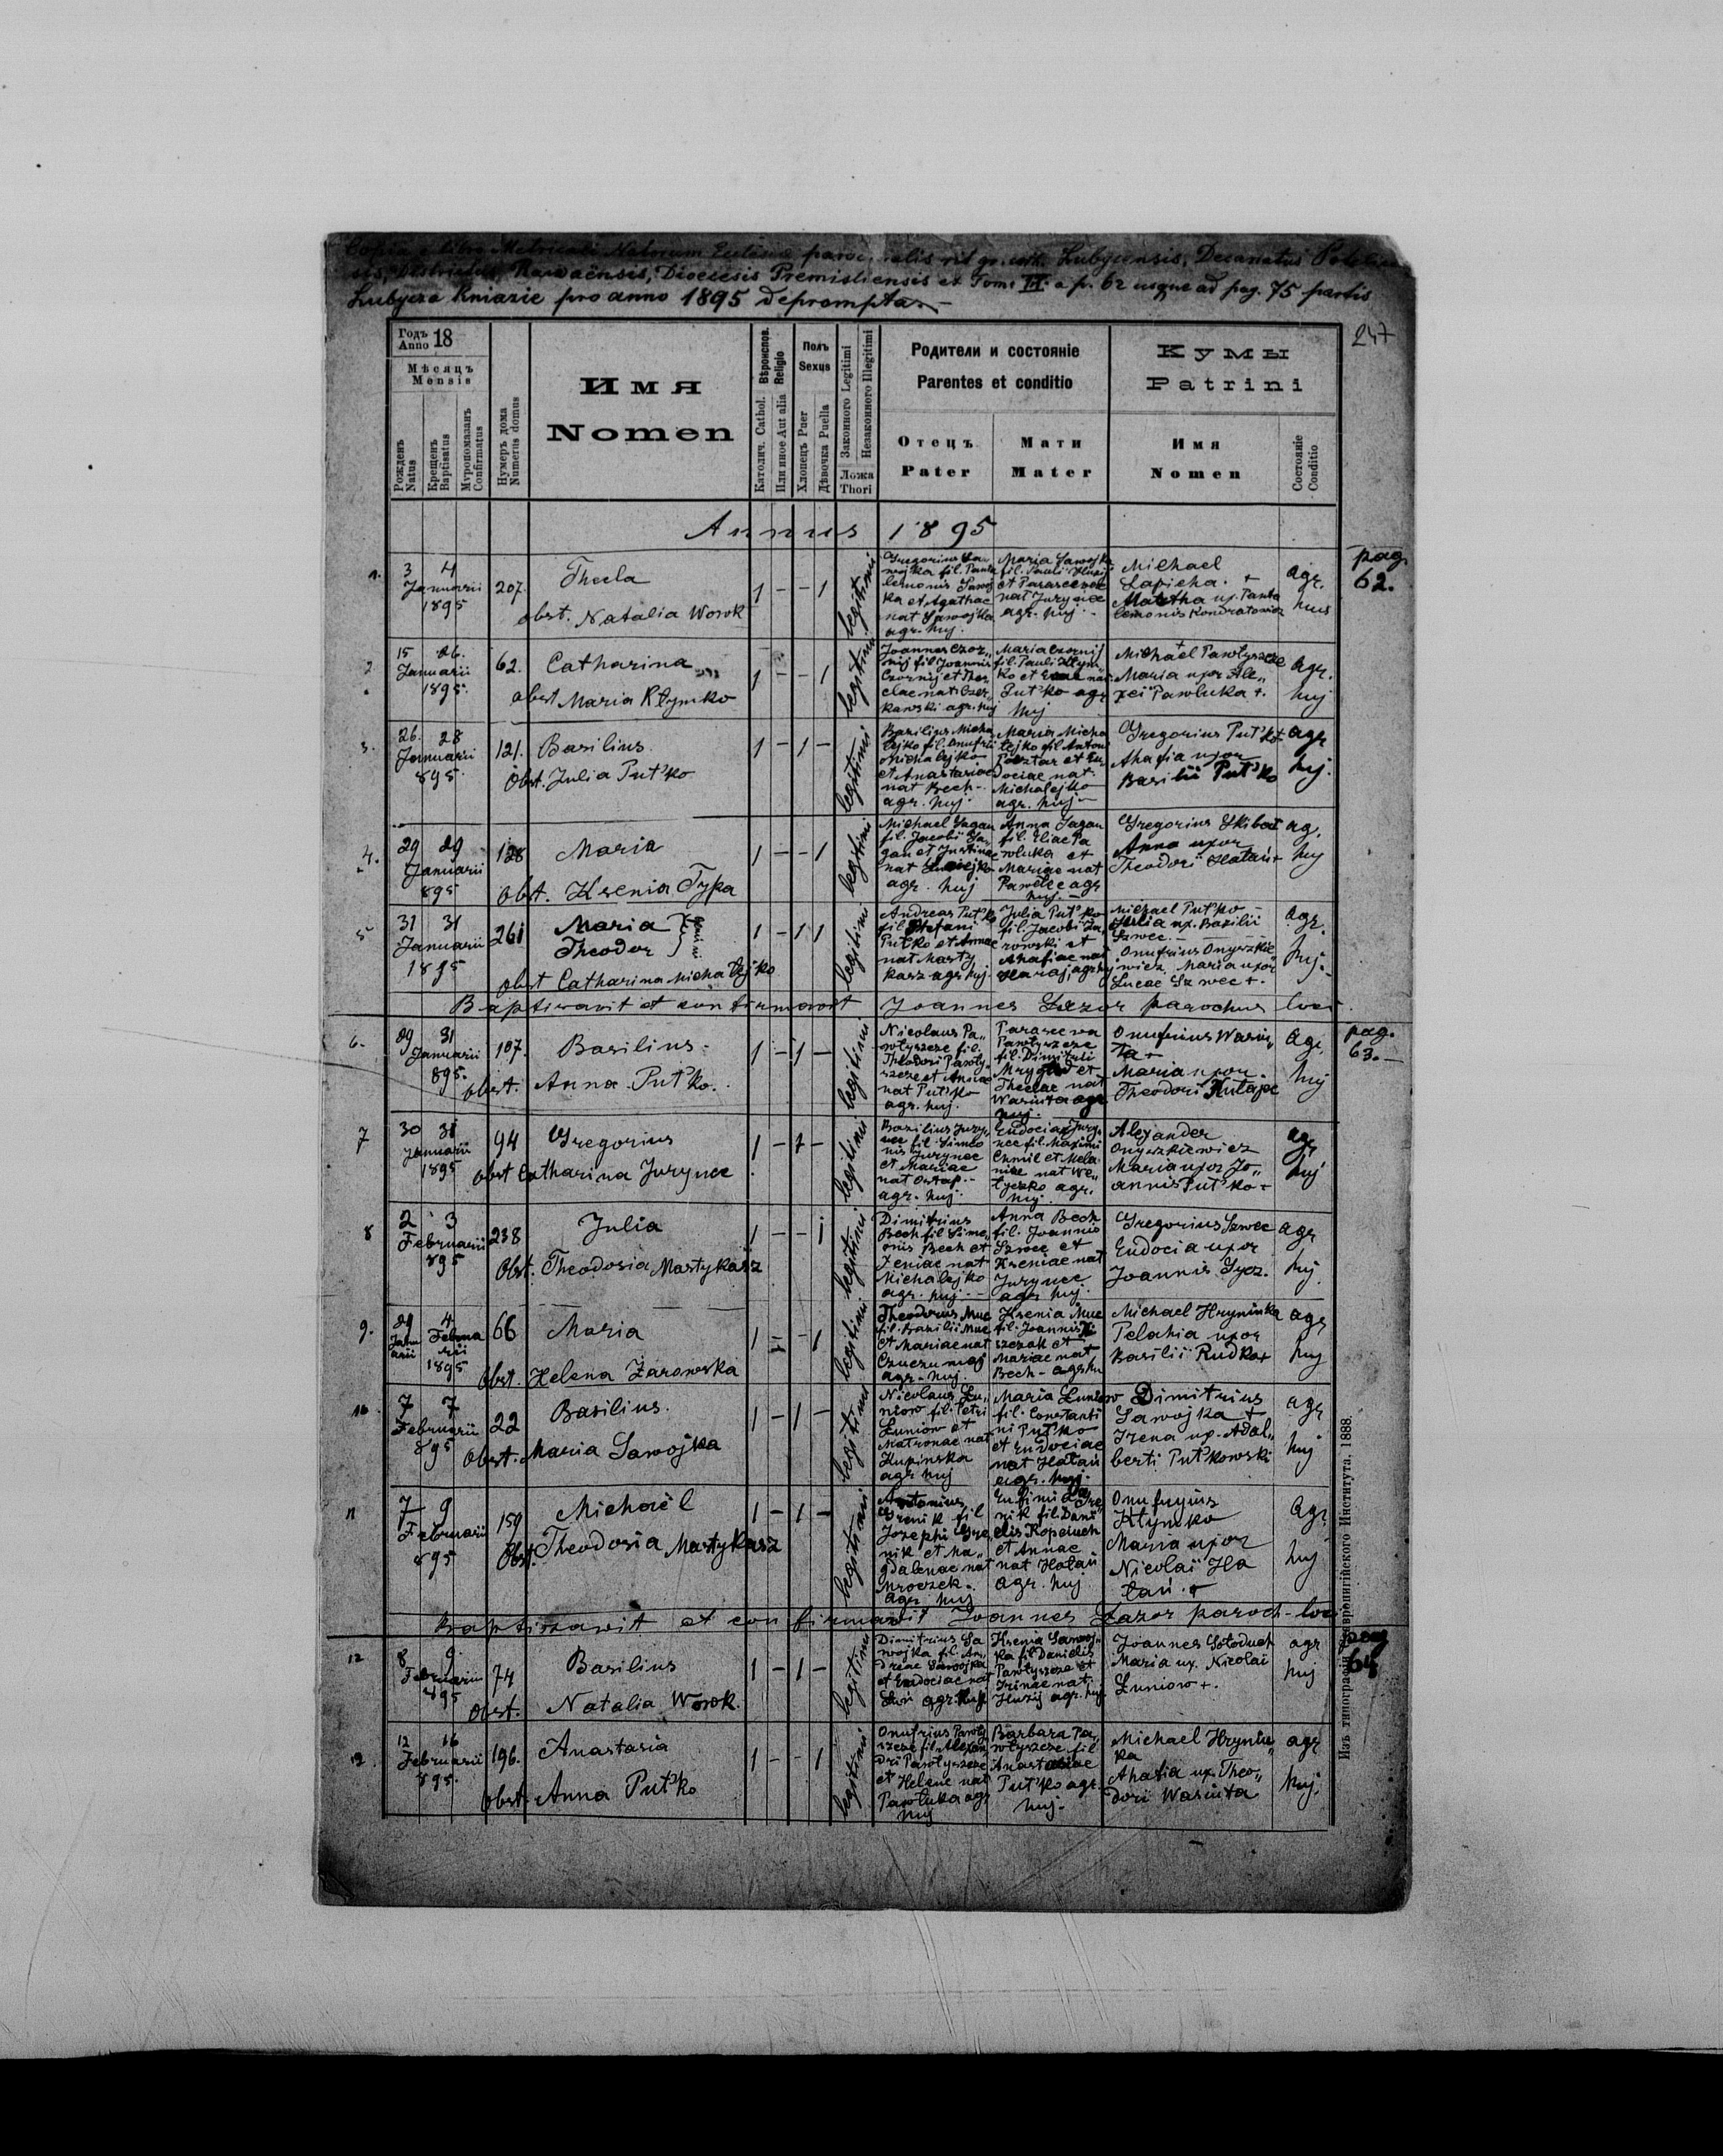 Copia e libro Metricali Natorum Ecclesiae parochialis rit. gr. cath. Lubycensis, Decanatus
Districtus Rawaënsis, Dioecesis Premisliensis et Tom. III. a p. 62 usque ad pag. 75 partis
Lubycza Kniazie pro anno 1895 deprompta.
247
Годъ Anno 18
Мѣсяцъ Mensis
Рожденъ Natus
Крещенъ Baptisatus
Мѵропомазанъ Confirmatus
Нумеръ дома Numerus domus
Имя
Nomen
Вѣроиспов. Religio
Католич. Cathol.
Или иное Aut alia
Полъ Sexus
Хлопецъ Puer
Дѣвочка Puella
Законного Legitimi
Незаконного Illegitimi
Ложа Thori
Родители и состояніе
Parentes et conditio
Отецъ
Pater
Мати
Mater
Кумы
Patrini
Имя
Nomen
Состояніе Conditio
Annus 1895
pag. 62.
1.
3 4
Januarii
1895
207
Thecla
obst. Natalia Worok
1 - - 1
legitimi
Gregorius Sa-
wojka fil. Panta
lemonis Sawoj
ka et Agathae
nat Sawojka
agr. huj.
Maria Sawojka
fil. Pauli
et Parascevae
nat Jurynec
agr. huj.
Michael
Lapicha. +
Martha ux. Panta
lemonis Kondratowicz
agr.
huj
2
15 26.
Januarii
1895.
62.
Catharina
obst Maria Kłymko
1 - - 1
legitimi
Joannes Czor„
nij fil Joannis
Czornij et Thec
clae nat Czer„
kawski agr. huj
Maria Czornij
fil. Pauli Kłym„
ko et nat.
Put'ko agr
huj
Michael Pawłyszcze
Maria uxor Ale„
xei Pawluka +.
agr.
huj
3.
26. 28
Januarii
895.
121.
Basilius.
Obst. Julia Put'ko
1 - 1 -
legitimi
Basilius Micha
lejko fil. Onufrii
Michalejko
et Anastasiae
nat Bech -
agr. huj.
Maria Micha
lejko fil Antoni
Pocztar et Eu
dociae nat.
Michalejko
agr. huj -
Gregorius Put'ko +
Ahafia uxor
Basilii Put'ko
agr
huj.
4.
29 29
Januarii
895
128
Maria
obst. Ksenia Tyka
1 - - 1
legitimi
Michael Sagan
fil. Jacobi Sa-
gan et Justinae
nat
agr. huj
Anna Sagan
fil. Eliae Pa
wluka et
Mariae nat
Pawlec agr
huj. -
Gregorius Skibat
Anna uxor
Theodori Hałań +
ag.
huj
5
31 31
Januarii
1895
261
Maria
Theodor
gemini
obst Catharina Michalejko
1 - 1 1
legitimi
Andreas Put'ko
fil Stefani
Put'ko et Annae
nat Marty
kasz agr huj.
Julia Put'ko
fil. Jacobi Ża
rowski et
Ahafiae nat
Haraj agr huj
Michael Put'ko -
Julia ux. Basilii
Szwec. -
Onufrius Onyszkie
wicz, Maria uxor
Lucae Szwec +.
agr.
huj.
Baptisavit et confirmavit Joannes Łazor parochus loci
pag. 63.
6.
29 31
Januarii
895.
107.
Basilius.
obst. Anna Put'ko.
1 - 1 -
legitimi
Nicolaus Pa„
włyszcze fil.
Theodori Pawły
szcze et Annae
nat Put'ko
agr. huj.
Parasceva
Pawłyszcze
fil. Dimitrii
et
Theclae nat
Wasiuta agr
huj.
Onufrius Wasiu„
ta +
Maria uxor
Theodori Kułape
agr.
huj
7
30 31
Januarii
1895
94
Gregorius
obst Catharina Jurynec
1 - 1 -
legitimi
Basilius Jury„
nec fil. Simeo
nis Jurynec
et Mariae
nat Ostap. -
agr. huj.
Eudocia Jury
nec fil. Maximi
Chmil et Mela
niae nat We„
łyczko agr.
huj.
Alexander
Onyszkiewicz
Maria uxor Jo„
annis Put'ko +
agr
huj
8
2 3
Februarii
895
238
Julia
Obst. Theodosia Martykasz
1 - - 1
legitimi
Dimitrius
Bech fil Sime„
onis Bech et
Xeniae nat
Michalejko
agr. huj. -
Anna Bech
fil. Joannis
Szwec et
Kseniae nat
Jurynec
agr huj.
Gregorius Szwec
Eudocia uxor
Joannis Sycz.
agr
huj
9.
29 4
Januarii Februarii
1895
66
Maria
Obst. Helena Żarowska
1 - - 1
legitimi
Theodorus Muc
fil. Basilii Muc
et Mariae nat
agr. huj.
Ksenia Muc
fil. Joannis
et
Mariae nat
Bech - agr hu
Michael Hryniuka
Pelahia uxor
Basilii Rudka +
agr
huj
10.
7 7
Februarii
895
22
Basilius.
Obst. Maria Sawojka
1 - 1 -
legitimi
Nicolaus Łu„
niow fil. Petri
Łuniow et
Matronae nat
Kupinska
agr huj
Maria Łuniow
fil. Constanti
ni Put'ko
et Eudociae
nat Hałań
agr. huj.
Dimitrius
Sawojka +
Irena ux. Adal„
berti Put'kowski
agr
huj
11
7 9
Februarii
895
159
Michaël
Obst. Theodosia Martykasz
1 - 1 -
legitimi
Antonius
Hrenik fil
Josephi Hre
nik et Ma„
gdalenae nat
Mroczek.
agr huj
Eufimia Hre
nik fil. Dani
elis Kopciuch
et Annae
nat Hałań
agr. huj
Onufryus
Kłymko
Maria uxor
Nicolai Ha
łań. +
agr
huj
Baptisavit et confirmavit Joannes Łazor paroch - loci
pag 64
12
8 9.
Februarii
895
74
Basilius
Obst. Natalia Worok.
1 - 1 -
legitimi
Dimitrius Sa
wojka fil. An„
dreae Sawojka
et Eudociae nat
agr. huj
Ksenia Sawoj„
ka fil Danielis
Pawłyszcze et
Irinae nat.
Huzij agr. huj
Joannes Sołoduch
Maria ux. Nicolai
Łuniow +.
agr
huj
12 16
Februarii
895.
196.
Anastasia
Obst. Anna Put'ko
1 - - 1
legitimi
Onufrius Pawły
szcze fil. Alexan„
dri Pawłyszcze
et Helenae nat
Pawłuka agr
huj
Barbara Pa„
włyszcze fil
Anastasiae
Put'ko agr.
huj.
Michael Hryniu„
ka
Ahafia ux. Theo„
dori Wasiuta
agr
huj.
Изъ типографіи Ставропигійского Института. 1888.